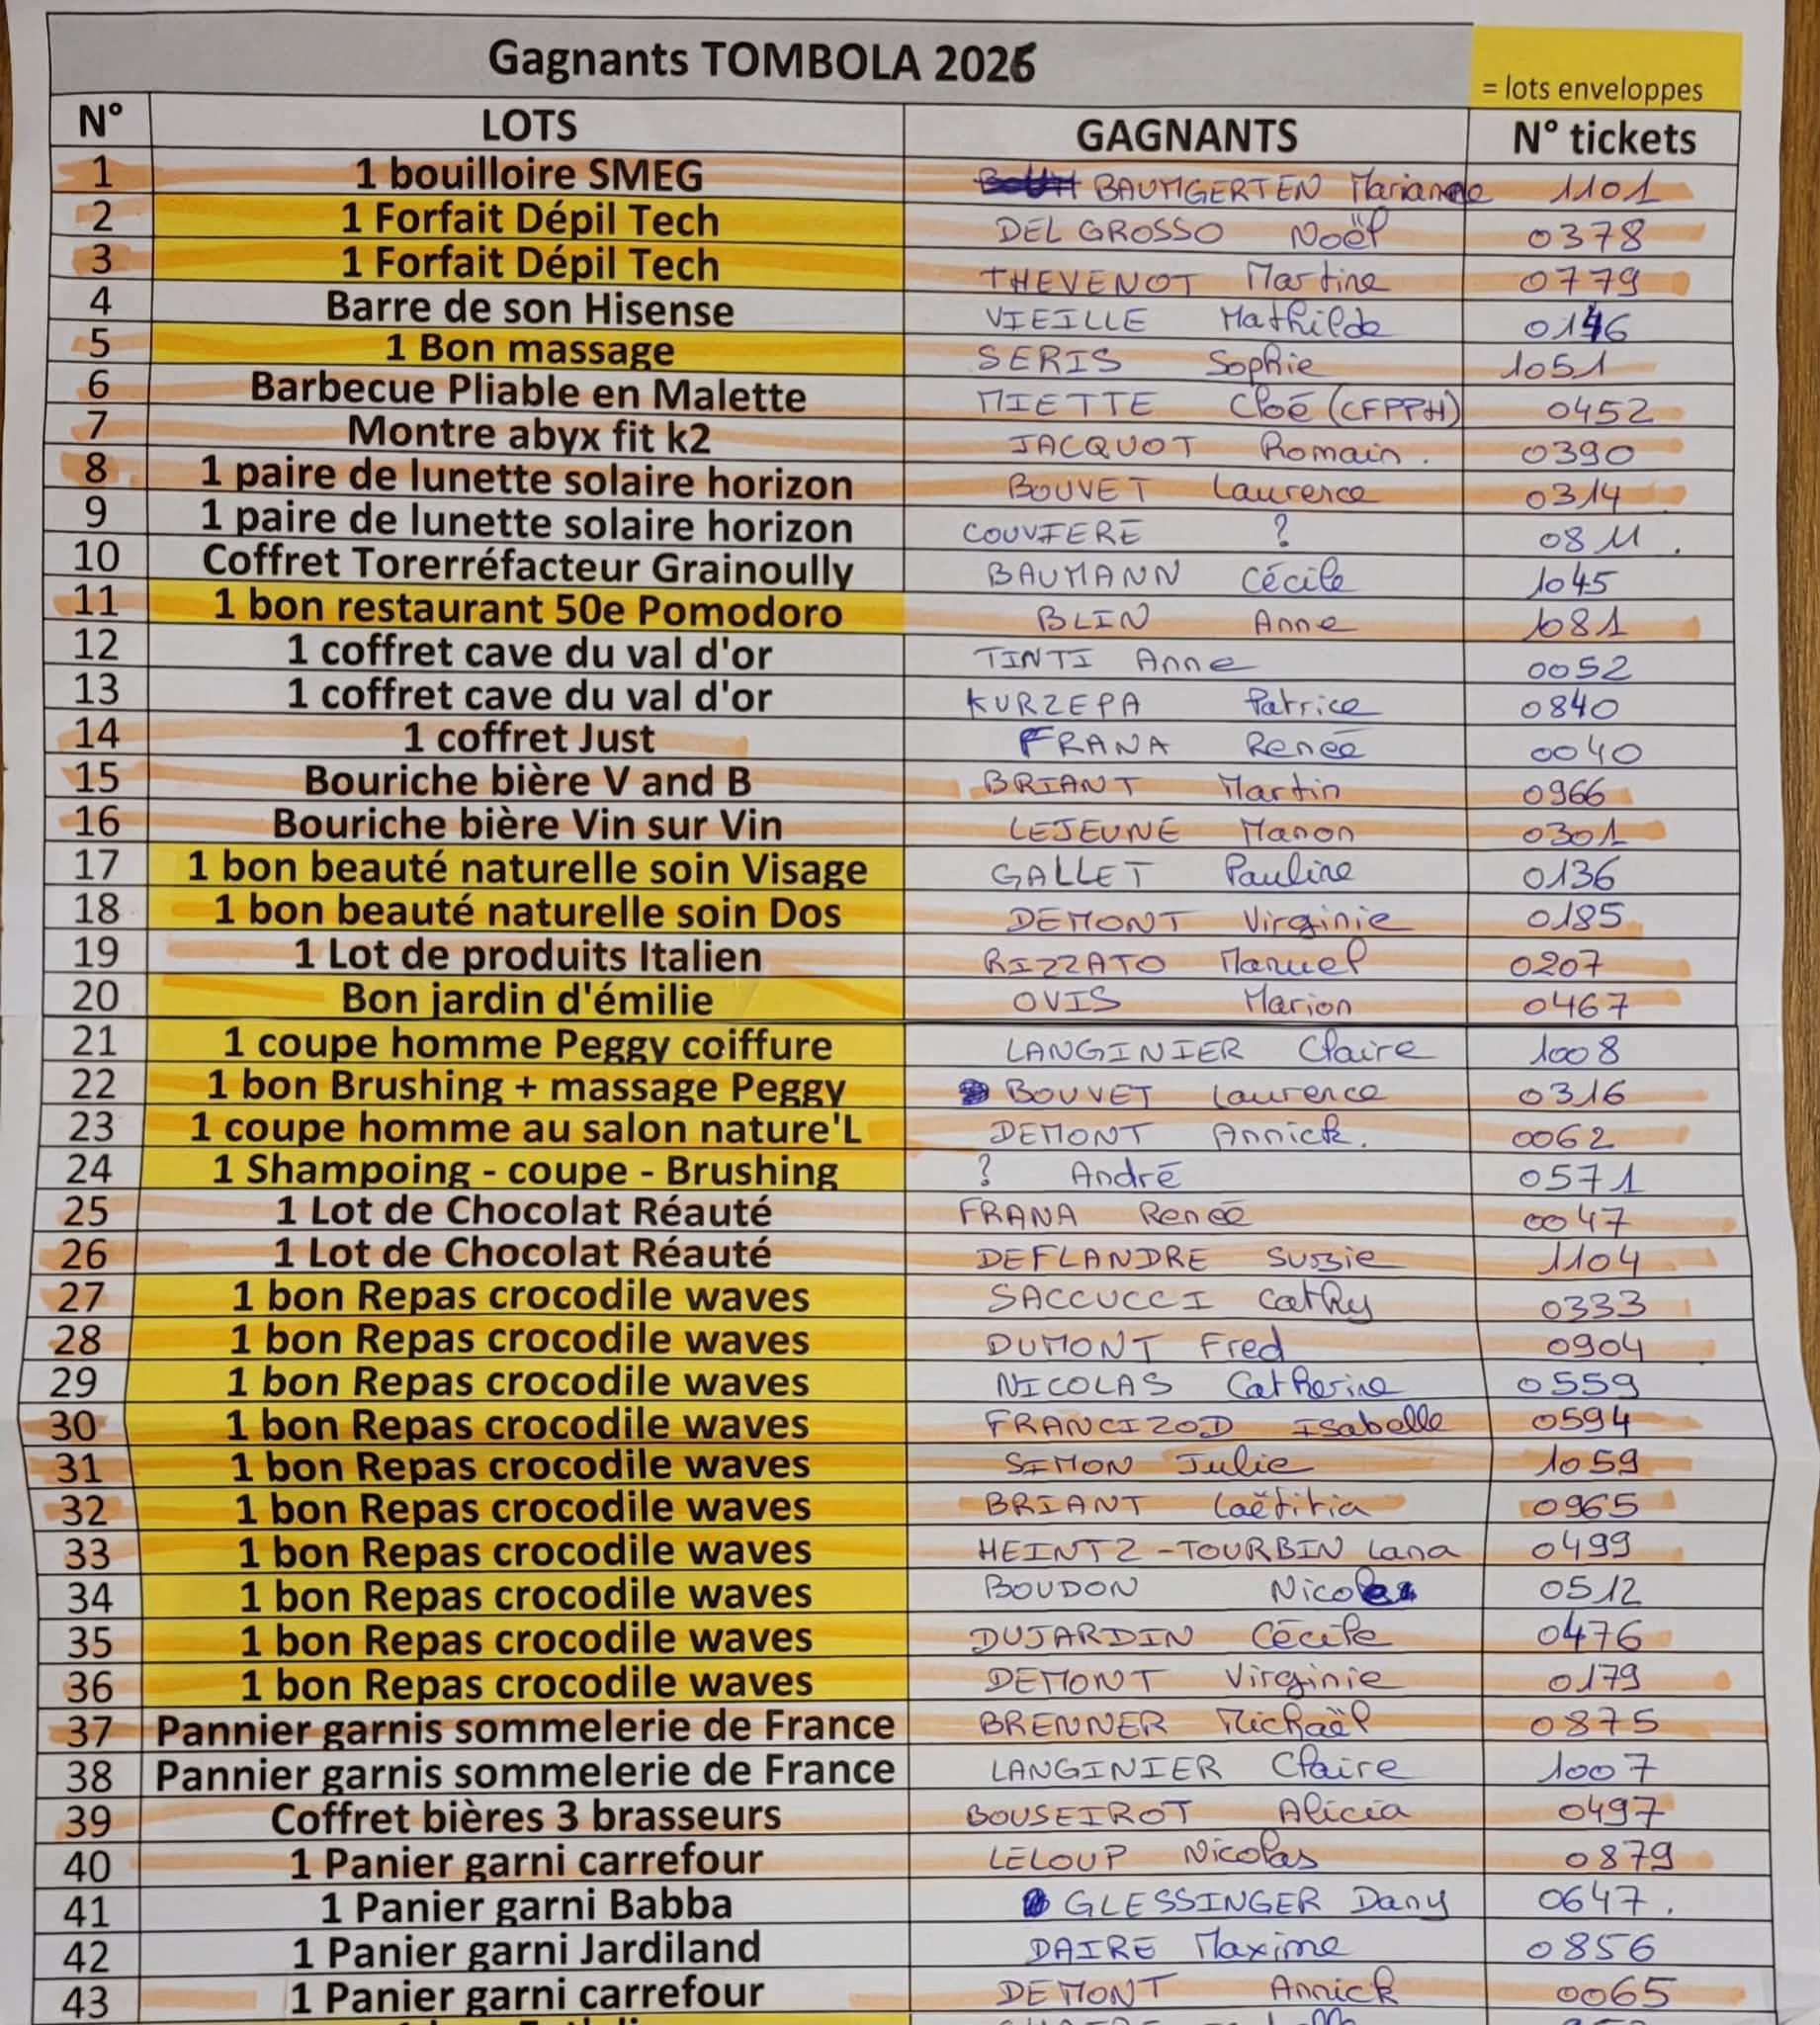 Gagnants TOMBOLA 2026
= lots enveloppes
N° LOTS GAGNANTS N° tickets
1 1 bouilloire SMEG BAUMGERTEN Marianne 1101
2 1 Forfait Dépil Tech DEL GROSSO Noël 0378
3 1 Forfait Dépil Tech THEVENOT Martine 0779
4 Barre de son Hisense VIEILLE Mathilde 0146
5 1 Bon massage SERIS Sophie 1051
6 Barbecue Pliable en Malette MIETTE Cloé (CFPPH) 0452
7 Montre abyx fit k2 JACQUOT Romain. 0390
8 1 paire de lunette solaire horizon BOUVET Laurence 0314
9 1 paire de lunette solaire horizon COUVIERE ? 0811.
10 Coffret Torerréfacteur Grainoully BAUMANN Cécile 1045
11 1 bon restaurant 50e Pomodoro BLIN Anne 1081
12 1 coffret cave du val d'or TINTI Anne 0052
13 1 coffret cave du val d'or KURZEPA Patrice 0840
14 1 coffret Just FRANA Renée 0040
15 Bouriche bière V and B BRIANT Martin 0966
16 Bouriche bière Vin sur Vin LEJEUNE Manon 0301
17 1 bon beauté naturelle soin Visage GALLET Pauline 0136
18 1 bon beauté naturelle soin Dos DEMONT Virginie 0185
19 1 Lot de produits Italien RIZZATO Manuel 0207
20 Bon jardin d'émilie OVIS Marion 0467
21 1 coupe homme Peggy coiffure LANGINIER Claire 1008
22 1 bon Brushing + massage Peggy BOUVET Laurence 0316
23 1 coupe homme au salon nature'L DEMONT Annick. 0062
24 1 Shampoing - coupe - Brushing ? André 0571
25 1 Lot de Chocolat Réauté FRANA Renée 0047
26 1 Lot de Chocolat Réauté DEFLANDRE Suzzie 1104
27 1 bon Repas crocodile waves SACCUCCI Cathy 0333
28 1 bon Repas crocodile waves DUMONT Fred 0904
29 1 bon Repas crocodile waves NICOLAS Catherine 0559
30 1 bon Repas crocodile waves FRANCIZOD Isabelle 0594
31 1 bon Repas crocodile waves SIMON Julie 1059
32 1 bon Repas crocodile waves BRIANT Laëtitia 0965
33 1 bon Repas crocodile waves HEINTZ-TOURBIN Lana 0499
34 1 bon Repas crocodile waves BOUDON 0512
35 1 bon Repas crocodile waves DUJARDIN Cécile 0476
36 1 bon Repas crocodile waves DEMONT Virginie 0179
37 Pannier garnis sommelerie de France BRENNER Michaël 0875
38 Pannier garnis sommelerie de France LANGINIER Claire 1007
39 Coffret bières 3 brasseurs BOUSEIROT Alicia 0497
40 1 Panier garni carrefour LELOUP Nicolas 0879
41 1 Panier garni Babba GLESSINGER Dany 0647.
42 1 Panier garni Jardiland DAIRE Maxime 0856
43 1 Panier garni carrefour DEMONT Annick 0065